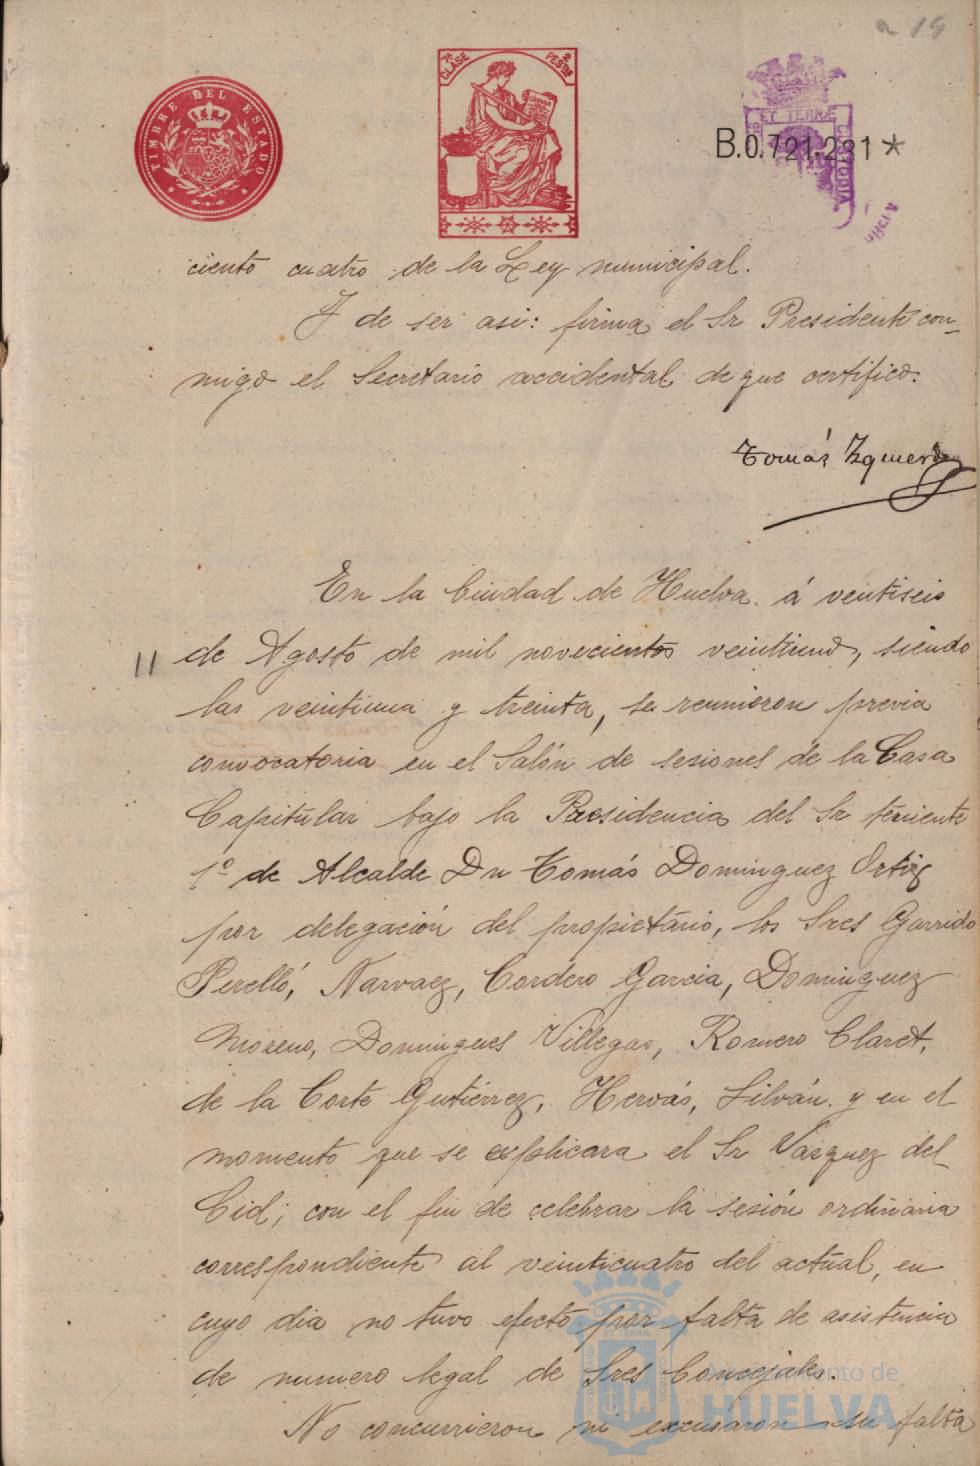 19
TIMBRE DEL ESTADO
7ª CLASE
2 PESTAS
ET TERRÆ
CUSTODIA
B.0.721.231*
ciento cuatro de la Ley municipal.
Y de ser asi: firma el Sr Presidente con-
migo el Secretario accidental de que certifico.
Tomás Izquierdo
En la Ciudad de Huelva á ventiseis
11 de Agosto de mil novecientos veintiuno, siendo
las veintiuna y treinta, se reunieron previa
convocatoria en el Salón de sesiones de la Casa
Capitular bajo la Presidencia del Sr teniente
1º de Alcalde Dn Tomás Dominguez Ortiz
por delegación del propietario, los Sres Garrido
Perelló, Narvaez, Cordero Garcia, Dominguez
Moreno, Domingues Villegas, Romero Claret,
de la Corte Gutiérrez, Hervás, Silván y en el
momento que se esplicara el Sr Vazquez del
Cid; con el fin de celebrar la sesión ordinaria
correspondiente al veinticuatro del actual, en
cuyo dia no tuvo efecto por falta de asistencia
de numero legal de Sres Concejales.
No concurrieron ni excusaron su falta
ET TERRÆ
Ayuntamiento de
HUELVA